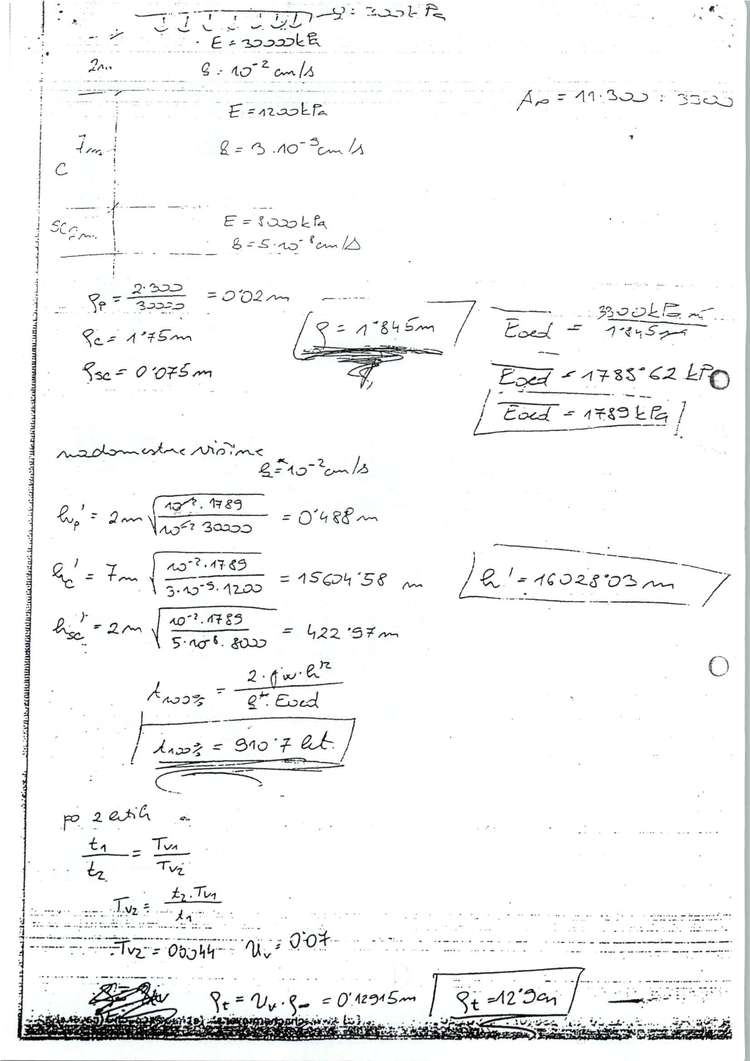 q = 300 kPa
E = 30000 kPa
2m
k = 10⁻² cm/s
E = 1200 kPa
Aₚ = 11·300 = 3300
7m
k = 3·10⁻⁹ cm/s
C
E = 8000 kPa
SC 2m
k = 5·10⁻⁸ cm/s
ρₚ = 2·300 / 30000 = 0'02 m
ρc = 1'75 m
ρsc = 0'075 m
ρ = 1'845 m
Eoed = 3300 kPa m / 1'845 m
Eoed = 1785'62 kPa
Eoed = 1789 kPa
nadomestne višine
k* = 10⁻² cm/s
hp' = 2m √(10⁻²·1789 / 10⁻²·30000) = 0'488 m
hc' = 7m √(10⁻²·1789 / 3·10⁻⁹·1200) = 15604'58 m
h' = 16028'03 m
hsc' = 2m √(10⁻²·1789 / 5·10⁻⁸·8000) = 422'97 m
t₁₀₀% = 2·γw·h'² / k*·Eoed
t₁₀₀% = 910'7 let.
po 2 letih
t₁ / t₂ = Tv₁ / Tv₂
Tv₂ = t₂·Tv₁ / t₁
Tv₂ = 0'0044 Uv = 0'07
ρt = Uv·ρ∞ = 0'12915 m
ρt = 12'9 cm